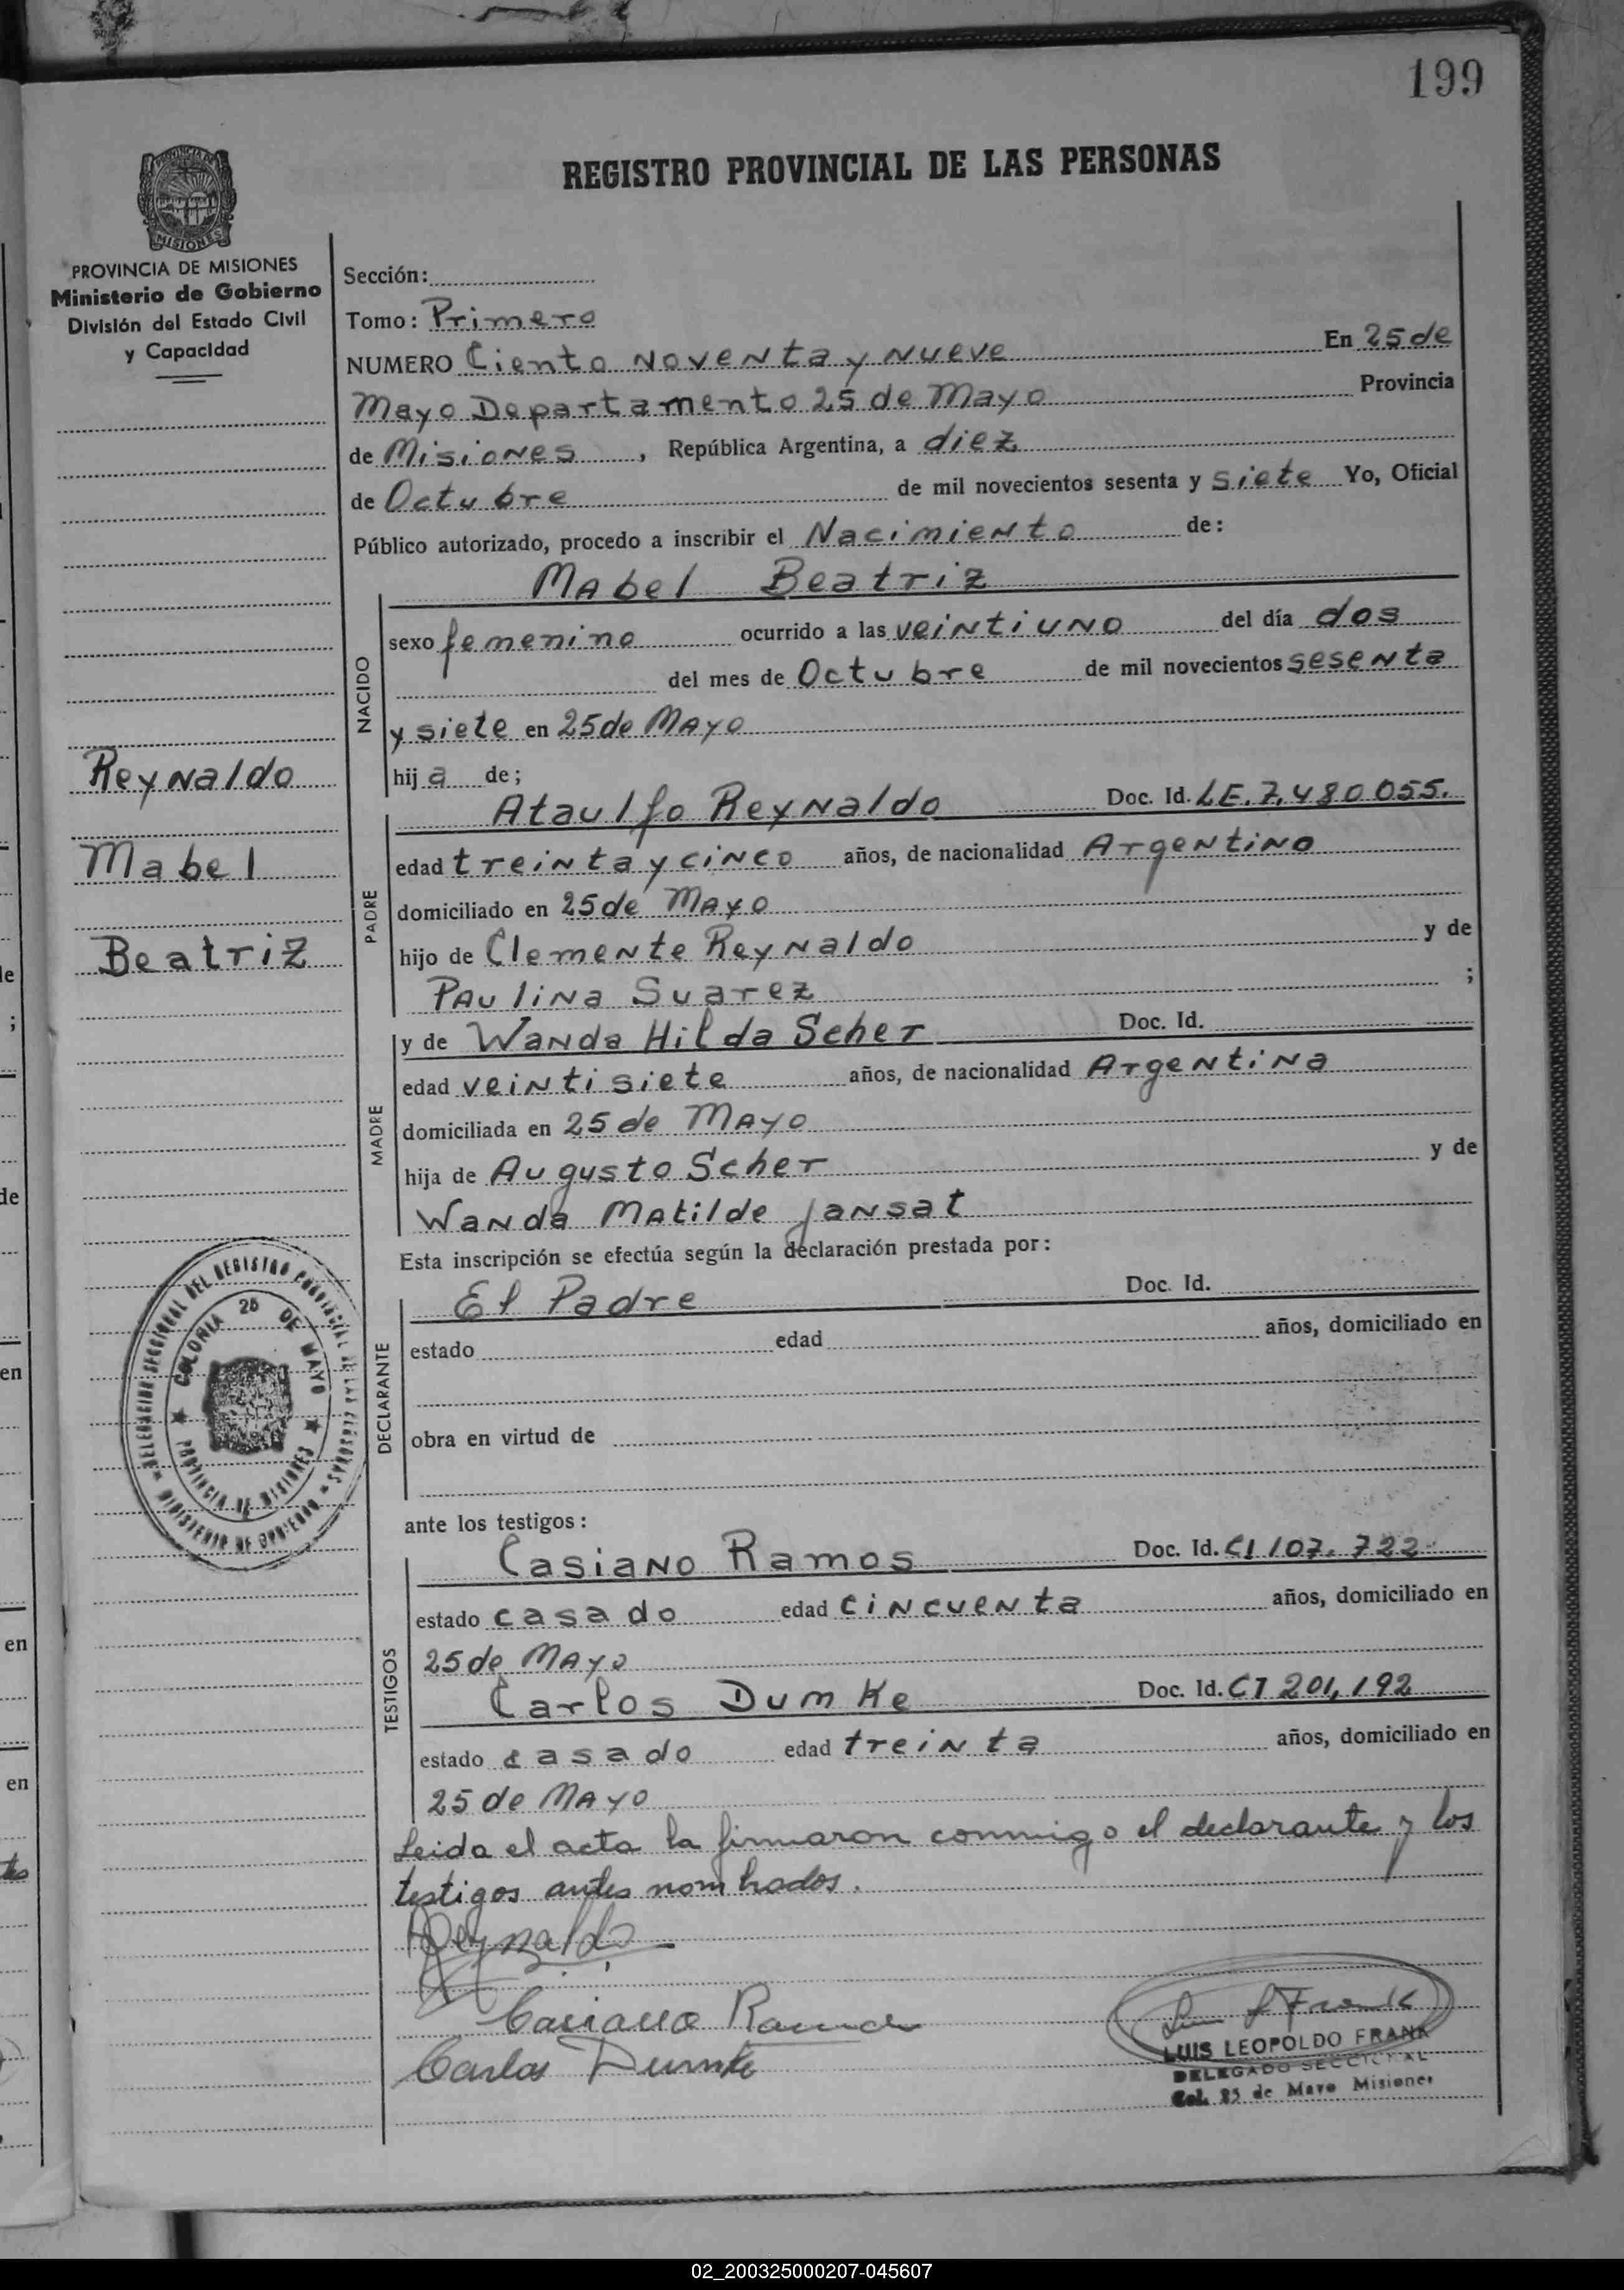 199
REGISTRO PROVINCIAL DE LAS PERSONAS
PROVINCIA DE MISIONES
Ministerio de Gobierno
División del Estado Civil
y Capacidad
Sección:
Tomo: Primero
NUMERO Ciento Noventa y Nueve En 25 de
Mayo Departamento 25 de Mayo Provincia
de Misiones, República Argentina, a diez
de Octubre de mil novecientos sesenta y siete Yo, Oficial
Público autorizado, procedo a inscribir el Nacimiento de:
Mabel Beatriz
NACIDO
sexo femenino ocurrido a las veintiuno del día dos
del mes de Octubre de mil novecientos sesenta
y siete en 25 de Mayo
hija de;
Reynaldo
Mabel
Beatriz
PADRE
Ataulfo Reynaldo Doc. Id. LE. 7.480055.
edad treinta y cinco años, de nacionalidad Argentino
domiciliado en 25 de Mayo
hijo de Clemente Reynaldo y de
Paulina Suarez ;
MADRE
y de Wanda Hilda Scher Doc. Id.
edad veintisiete años, de nacionalidad Argentina
domiciliada en 25 de Mayo
hija de Augusto Scher y de
Wanda Matilde Jansat
Esta inscripción se efectúa según la declaración prestada por:
DECLARANTE
El Padre Doc. Id.
estado edad años, domiciliado en
obra en virtud de
DELEGACION SECCIONAL DEL REGISTRO PROVINCIAL DE LAS PERSONAS
MINISTERIO DE GOBIERNO
COLONIA 25 DE MAYO
PROVINCIA DE MISIONES
ante los testigos:
TESTIGOS
Casiano Ramos Doc. Id. CI 107.722
estado casado edad cincuenta años, domiciliado en
25 de Mayo
Carlos Dumke Doc. Id. CI 201,192
estado casado edad treinta años, domiciliado en
25 de Mayo
Leida el acta la firmaron conmigo el declarante y los
testigos antes nombrados.
Reynaldo
Casiano Ramos
Carlos Dumke
LUIS LEOPOLDO FRANK
DELEGADO SECCIONAL
Col. 25 de Mayo Misiones
en
de
en
en
en
02_200325000207-045607